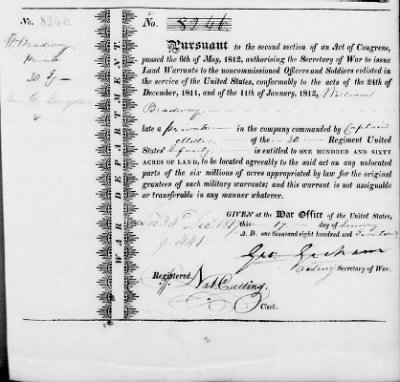 No. 8246.
Wm Bradway
Private
30 Iy
WAR DEPARTMENT.
No. 8246.
Pursuant to the second section of an Act of Congress,
passed the 6th of May, 1812, authorising the Secretary of War to issue
Land Warrants to the noncommissioned Officers and Soldiers enlisted in
the service of the United States, conformably to the acts of the 24th of
December, 1811, and of the 11th of January, 1812, William
Bradway
late a private in the company commanded by Captain
of the 30 Regiment United
States' Infantry is entitled to ONE HUNDRED AND SIXTY
ACRES OF LAND, to be located agreeably to the said act on any unlocated
parts of the six millions of acres appropriated by law for the original
grantees of such military warrants; and this warrant is not assignable
or transferable in any manner whatever.
GIVEN at the War Office of the United States,
this 17 day of January
A. D. one thousand eight hundred and
Dec 1817
p. 441
Geo: Graham
Acting Secretary of War.
Registered,
Nat. Cutting
Clerk.